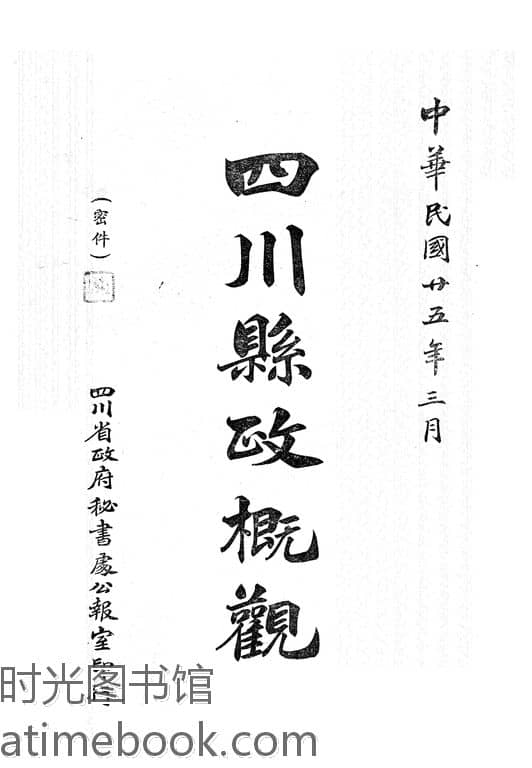 中華民國廿五年三月
四川縣政概觀
(密件)
四川省政府秘書處公報室
时光图书馆
atimebook.com